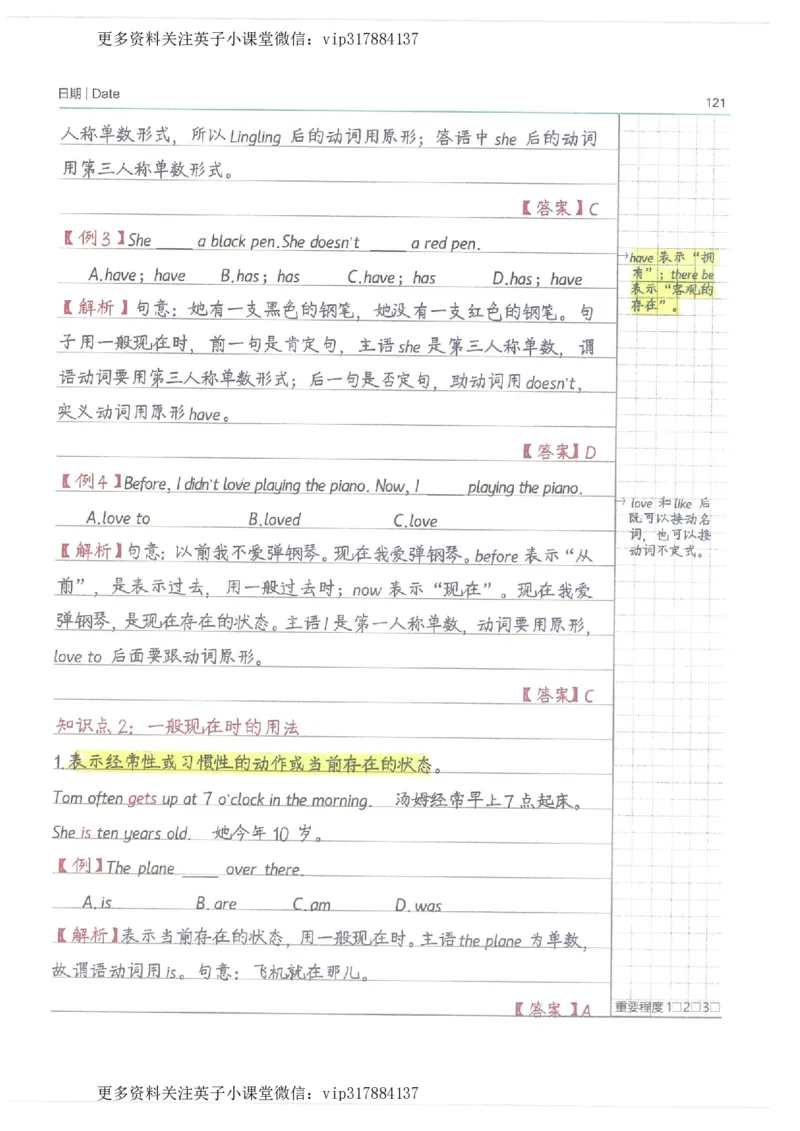 更多资料关注英子小课堂微信：vip317884137
日期 | Date
121
人称单数形式，所以 Lingling 后的动词用原形；答语中 she 后的动词
用第三人称单数形式。
【答案】C
【例3】She _____ a black pen.She doesn't _____ a red pen.
A.have；have B.has；has C.have；has D.has；have
【解析】句意：她有一支黑色的钢笔，她没有一支红色的钢笔。句
子用一般现在时，前一句是肯定句，主语 she 是第三人称单数，谓
语动词要用第三人称单数形式；后一句是否定句，助动词用 doesn't，
实义动词用原形 have。
【答案】D
→have 表示“拥
有”；there be
表示“客观的
存在”。
【例4】Before, I didn't love playing the piano. Now, I _____ playing the piano.
A.love to B.loved C.love
【解析】句意：以前我不爱弹钢琴。现在我爱弹钢琴。before 表示“从
前”，是表示过去，用一般过去时；now 表示“现在”。现在我爱
弹钢琴，是现在存在的状态。主语 I 是第一人称单数，动词要用原形，
love to 后面要跟动词原形。
【答案】C
→love 和 like 后
既可以接动名
词，也可以接
动词不定式。
知识点2：一般现在时的用法
1.表示经常性或习惯性的动作或当前存在的状态。
Tom often gets up at 7 o'clock in the morning. 汤姆经常早上7点起床。
She is ten years old. 她今年10岁。
【例】The plane _____ over there.
A.is B.are C.am D.was
【解析】表示当前存在的状态，用一般现在时。主语 the plane 为单数，
故谓语动词用 is。句意：飞机就在那儿。
【答案】A
重要程度 1□2□3□
更多资料关注英子小课堂微信：vip317884137